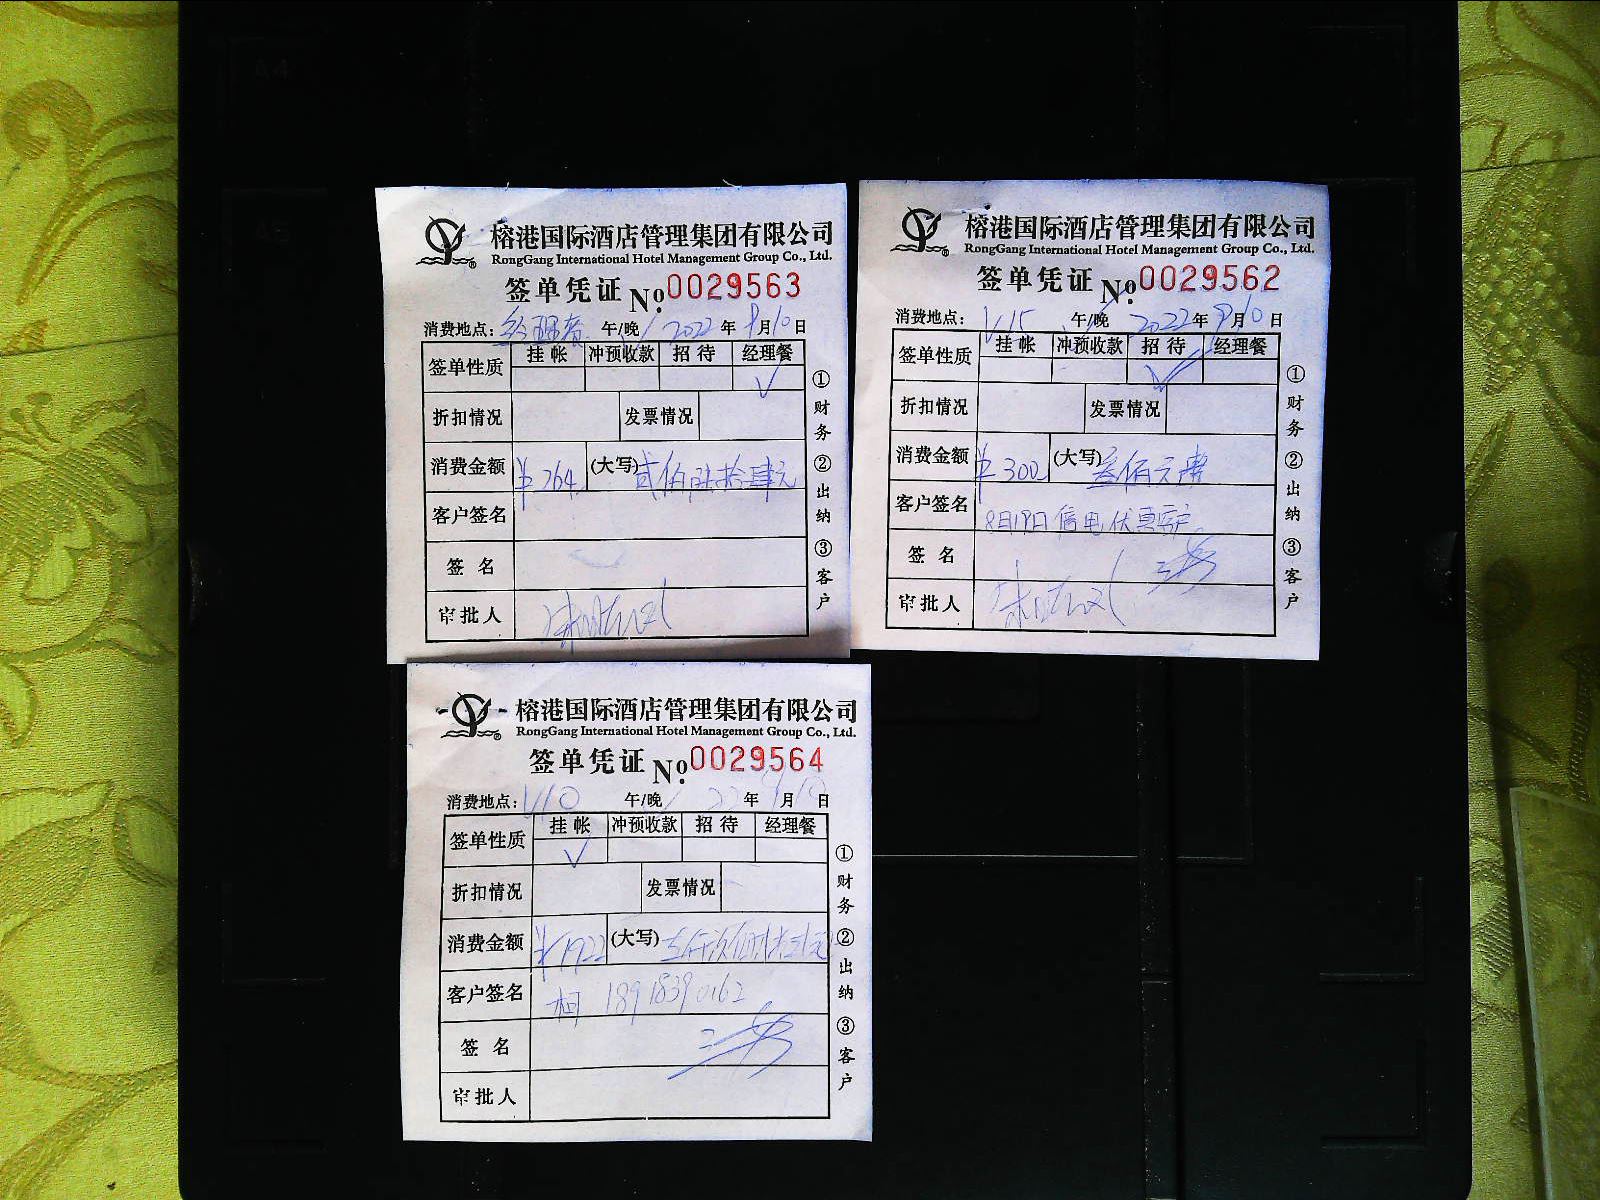 榕港国际酒店管理集团有限公司
RongGang International Hotel Management Group Co., Ltd.
签单凭证 No. 0029563
消费地点: 经理餐 午/晚 2022年 9月10日
签单性质 挂帐 冲预收款 招待 经理餐
✓
折扣情况 发票情况
消费金额 ¥264 (大写) 贰佰陆拾肆元
客户签名
签名
审批人
①财务 ②出纳 ③客户
榕港国际酒店管理集团有限公司
RongGang International Hotel Management Group Co., Ltd.
签单凭证 No. 0029562
消费地点: V15 午/晚 2022年 9月10日
签单性质 挂帐 冲预收款 招待 经理餐
✓
折扣情况 发票情况
消费金额 ¥300 (大写) 叁佰元整
客户签名 8月19日停电优惠客户
签名
审批人
①财务 ②出纳 ③客户
榕港国际酒店管理集团有限公司
RongGang International Hotel Management Group Co., Ltd.
签单凭证 No. 0029564
消费地点: V10 午/晚 22年 9月10日
签单性质 挂帐 冲预收款 招待 经理餐
✓
折扣情况 发票情况
消费金额 ¥1922 (大写)
客户签名 柯 18918390162
签名
审批人
①财务 ②出纳 ③客户
A4
A5